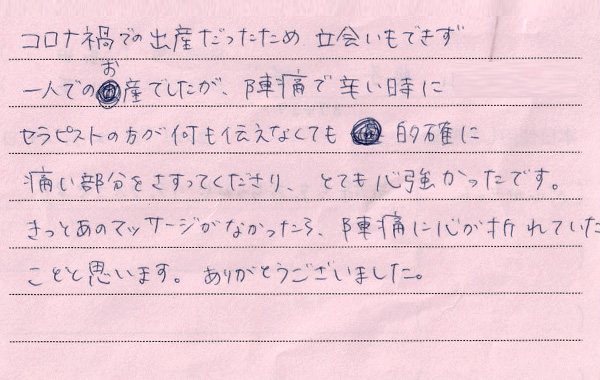 コロナ禍での出産だったため 立会いもできず
一人でのお産でしたが、陣痛で辛い時に
セラピストの方が何も伝えなくても 的確に
痛い部分をさすってくださり、とても心強かったです。
きっとあのマッサージがなかったら、陣痛に心が折れていた
ことと思います。ありがとうございました。